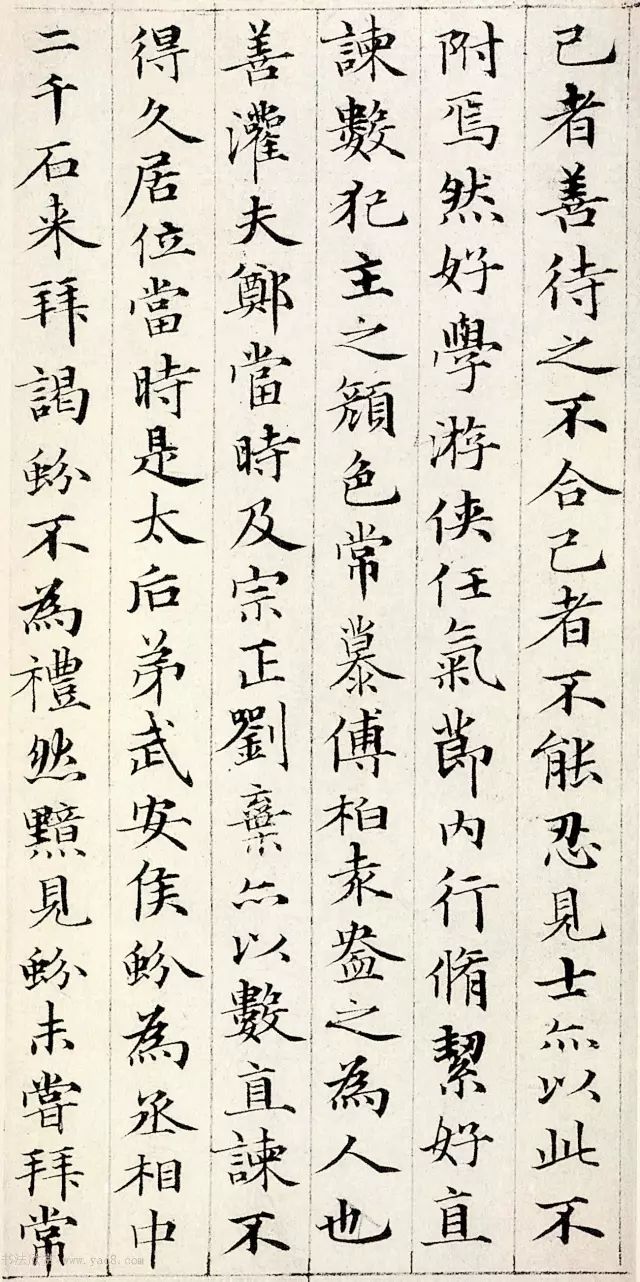 己者善待之不合己者不能忍見士亦以此不
附焉然好學游俠任氣節内行脩絜好直
諫數犯主之顏色常慕傅柏袁盎之為人也
善灌夫鄭當時及宗正劉棄亦以數直諫不
得久居位當時是太后弟武安侯蚡為丞相中
二千石来拜謁蚡不為禮然黯見蚡未嘗拜常